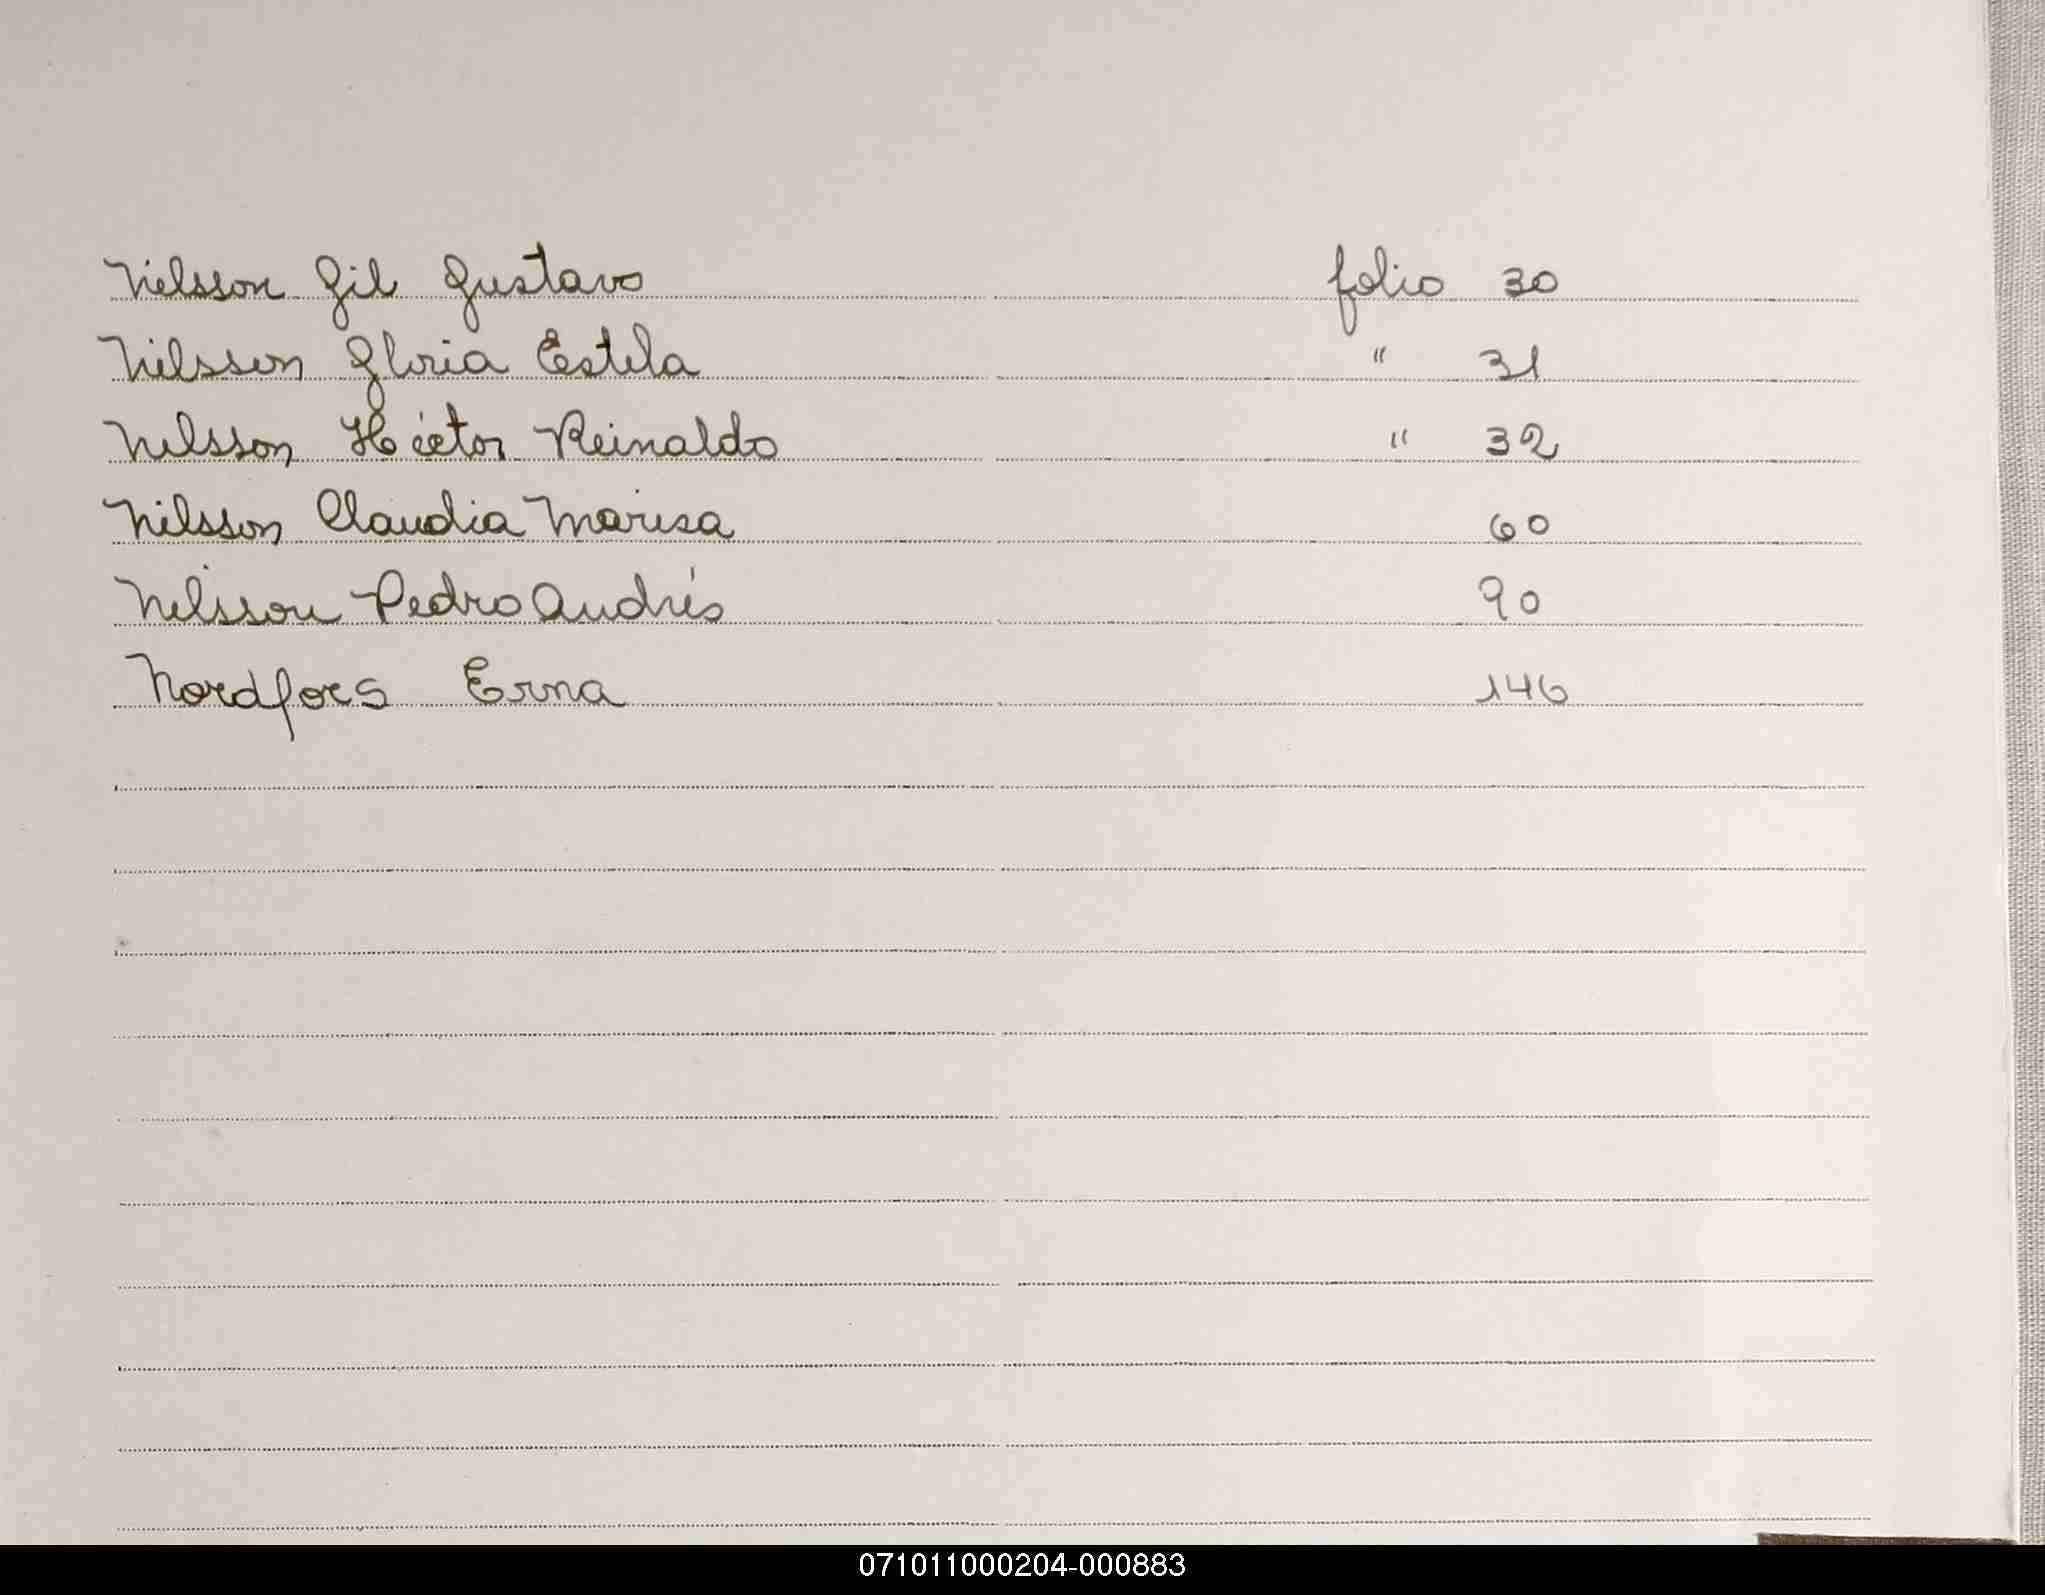 Nilsson Gil Gustavo folio 30
Nilsson Gloria Estela " 31
Nilsson Héctor Reinaldo " 32
Nilsson Claudia Marisa 60
Nilsson Pedro Andrés 90
Nordfors Erna 146
071011000204-000883